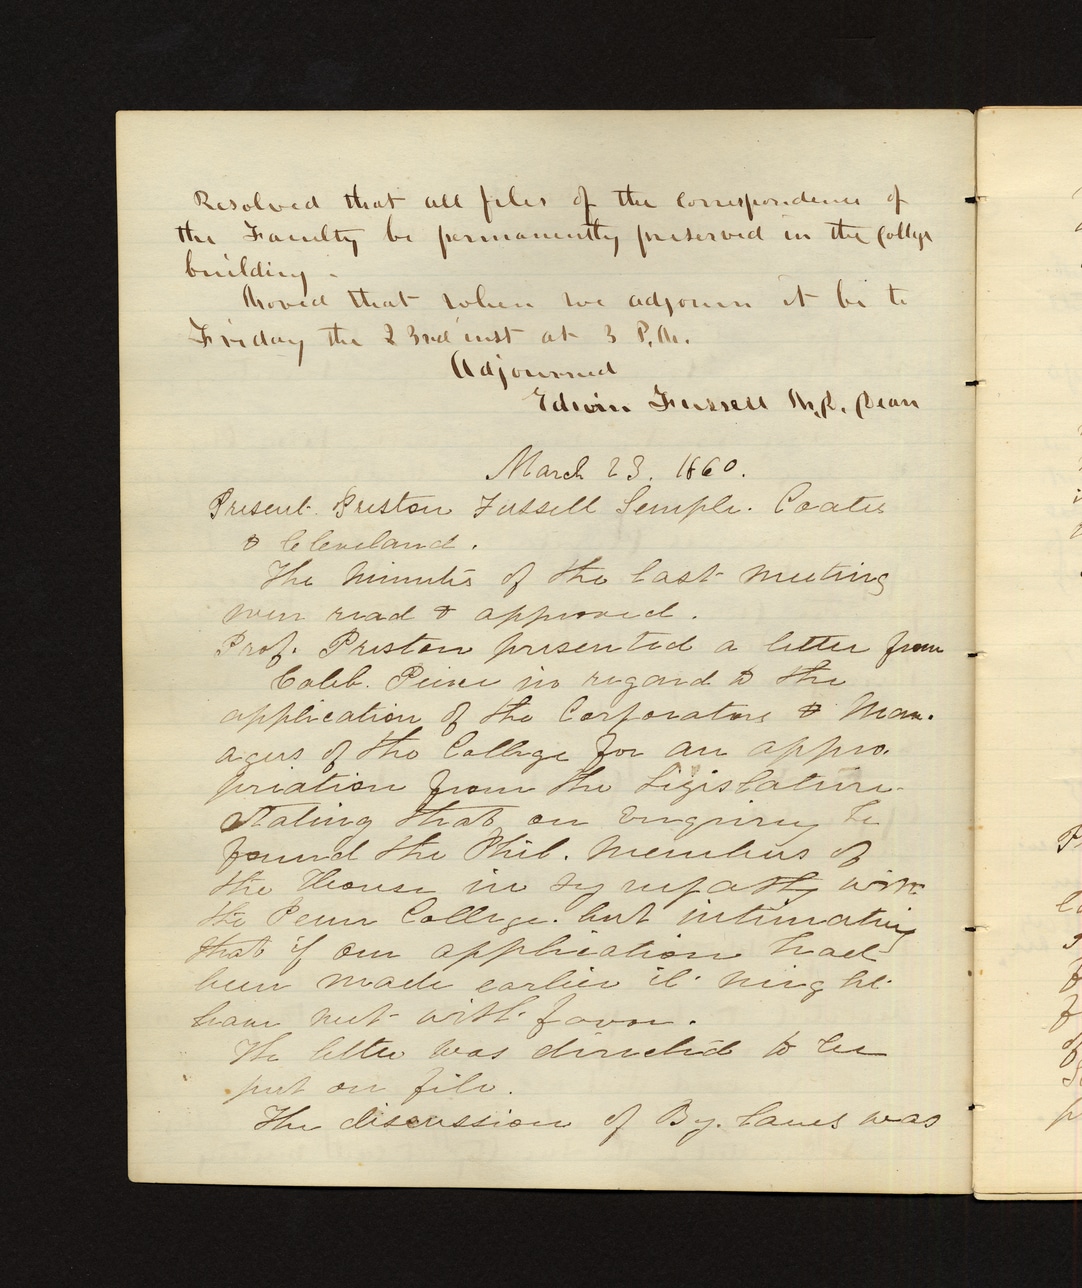 Resolved that all files of the correspondence of
the Faculty be permanently preserved in the College
building.
Moved that when we adjourn it be to
Friday the 23rd inst at 3 P.M.
Adjourned
Edwin Fussell M.D. Dean
March 23. 1860.
Present. Preston Fussell Semple. Coates
& Cleveland.
The minutes of the last meeting
were read & approved.
Prof. Preston presented a letter from
Caleb. Peirce in regard to the
application of the Corporators & Man-
agers of the College for an appro-
priation from the Legislature.
Stating that on enquiry he
found the Phil. members of
the House in sympathy with
the Penn College. but intimating
that if our application had
been made earlier it might
have met with favor.
The letter was directed to be
put on file.
The discussion of By. laws was